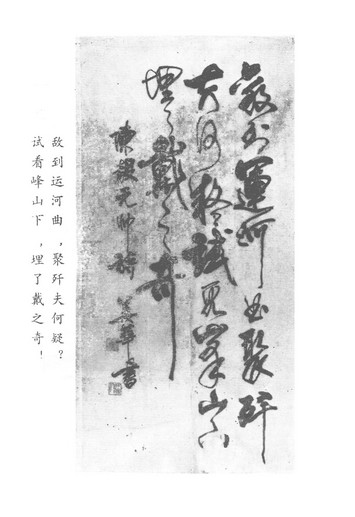 敵到運河曲聚歼
夫何疑試看峯山下
埋了戴之奇
陳毅元帥詩 華書
敌到运河曲，聚歼夫何疑？
试看峰山下，埋了戴之奇！